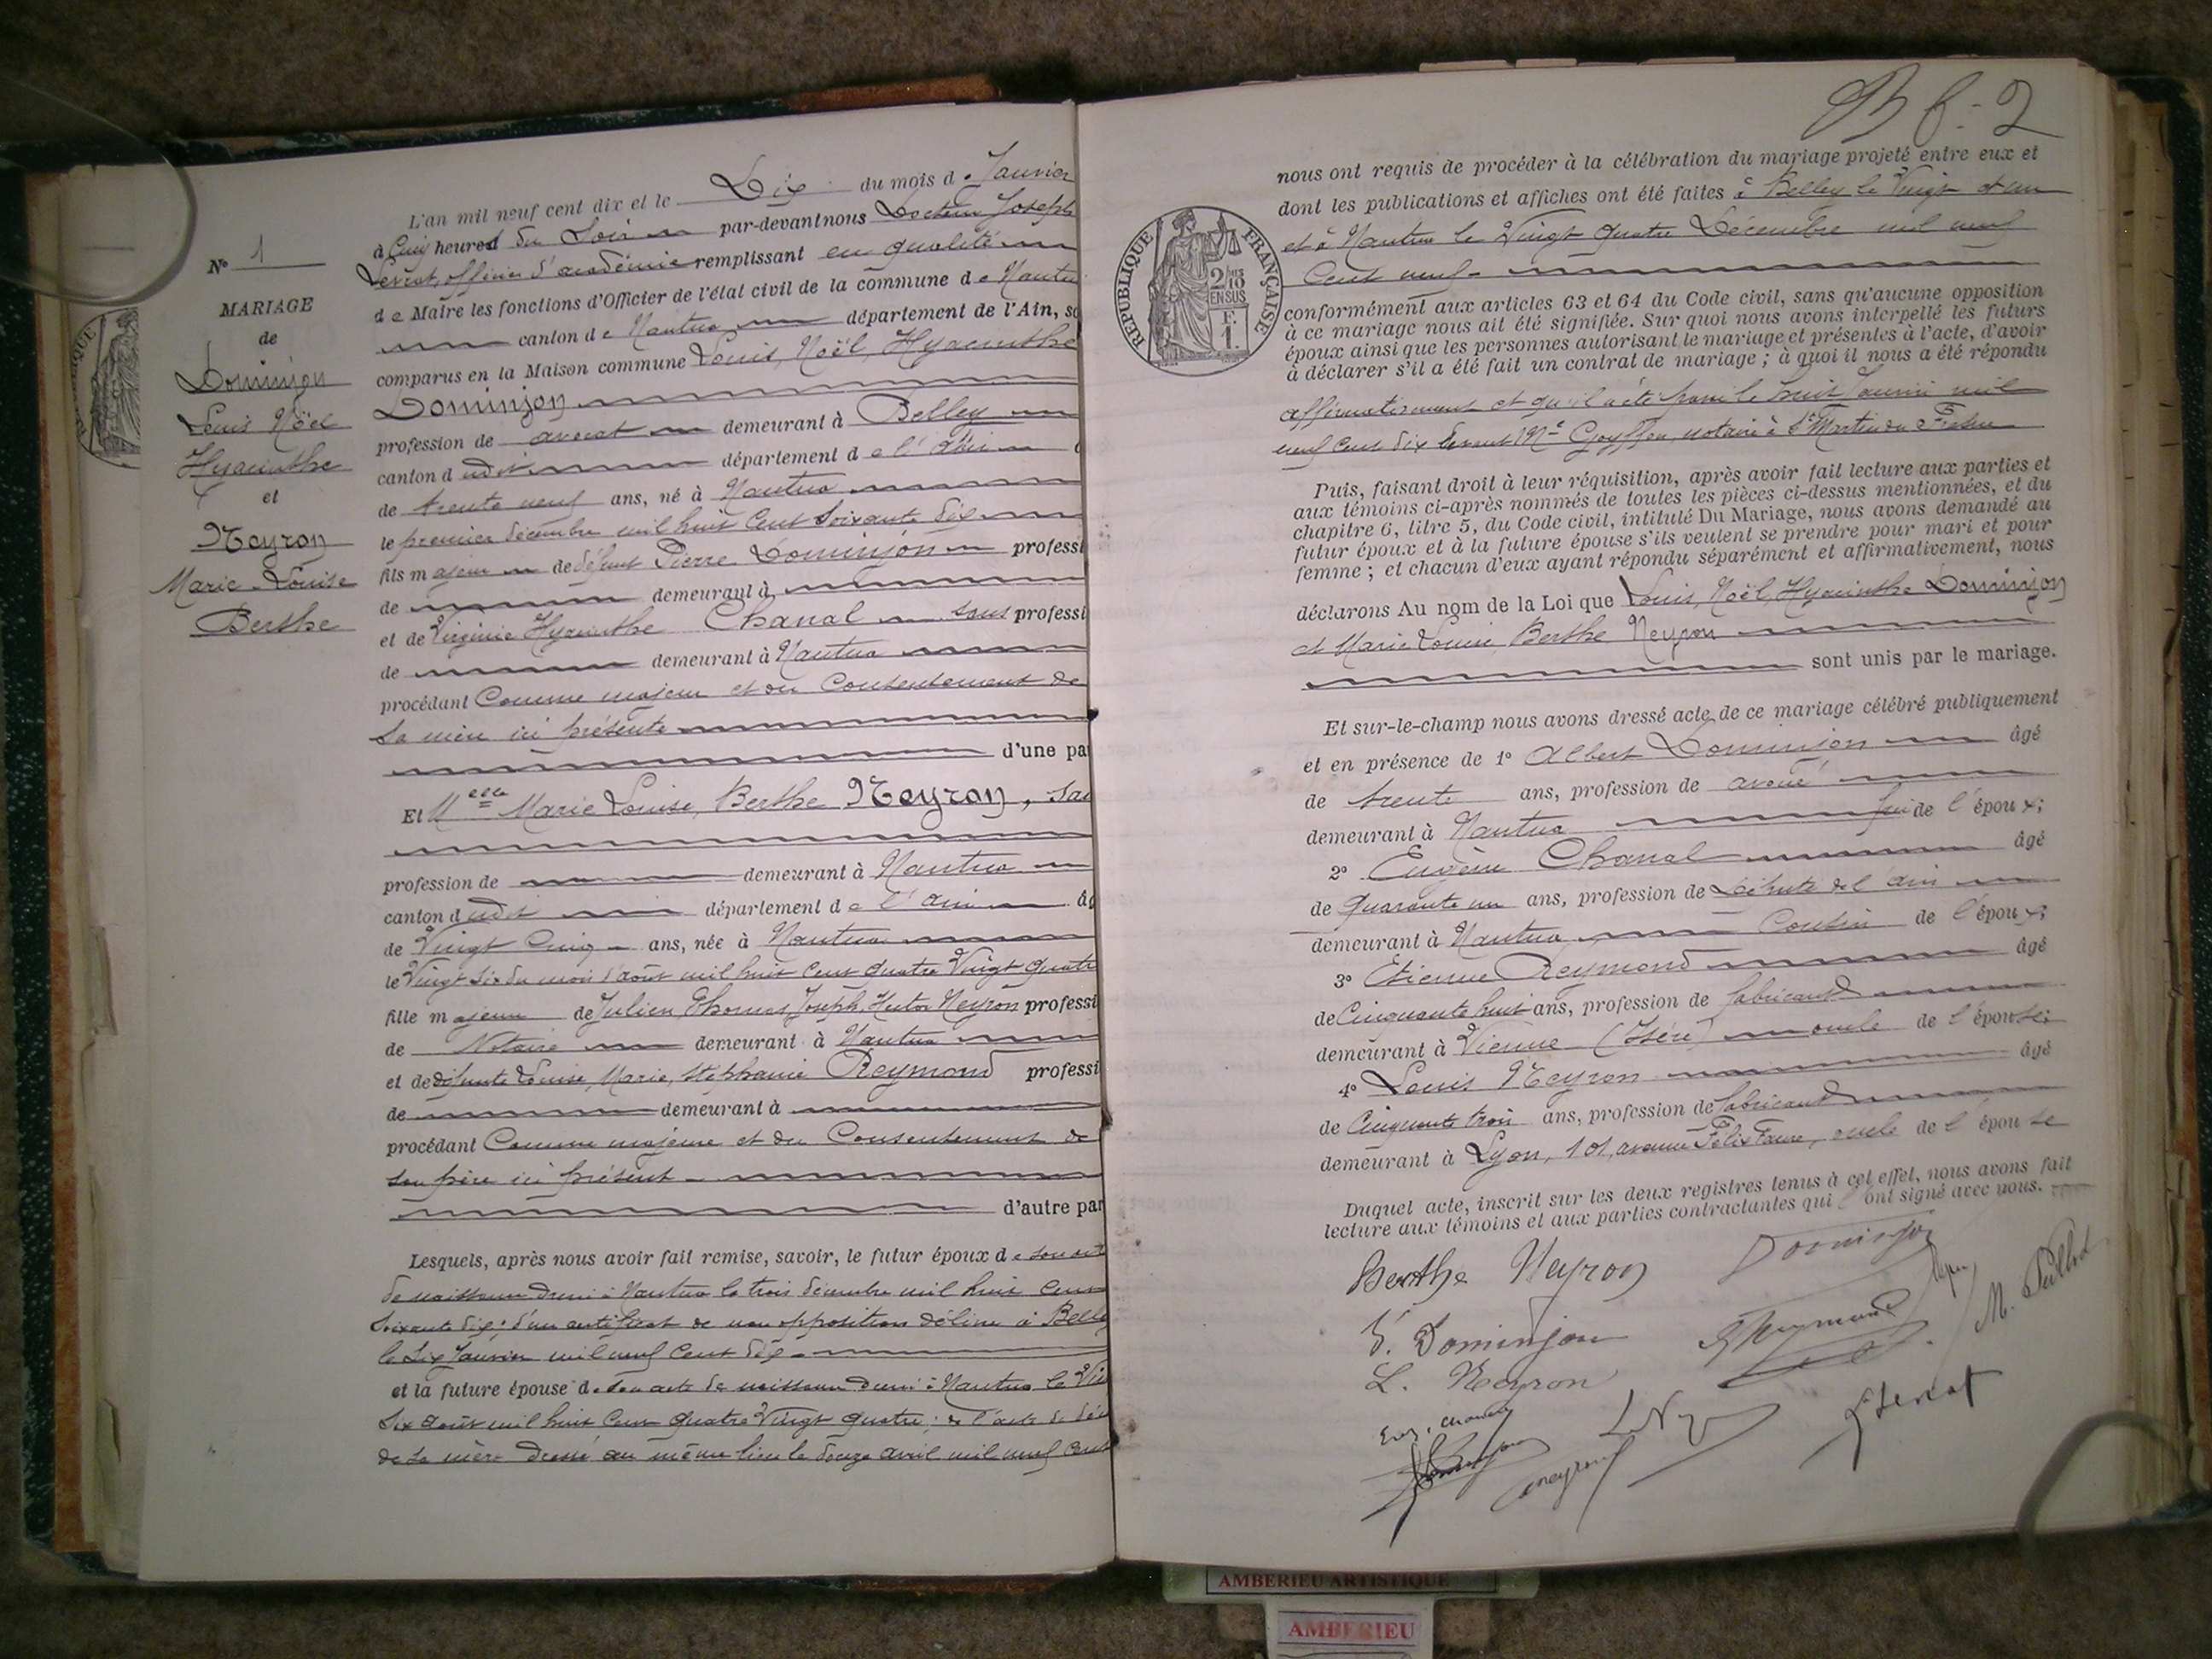 N° 1
MARIAGE
de
Dominjon
Louis Noël
Hyacinthe
et
Neyron
Marie Louise
Berthe
L'an mil neuf cent dix et le Dix du mois d e Janvier
à Cinq heures du Soir par-devant nous Docteur Joseph
Sercat, officier d'académie remplissant en qualité
d e Maire les fonctions d'Officier de l'état civil de la commune d e Nantua
canton d e Nantua département de l'Ain, so
comparus en la Maison commune Louis, Noël, Hyacinthe
Dominjon
profession de avocat demeurant à Belley
canton d udit département d e l'Ain
de trente neuf ans, né à Nantua
le premier décembre mil huit cent soixante dix
fils m ajeur de défunt Pierre Dominjon professi
de demeurant à
et de Virginie Hyacinthe Chanal sans professi
de demeurant à Nantua
procédant Comme majeur et du Consentement de
Sa mère ici présente
d'une par
Et Melle Marie Louise, Berthe Neyron, San
profession de demeurant à Nantua
canton d udit département d e l'Ain âg
de Vingt Cinq ans, née à Nantua
le Vingt six du mois d'août mil huit cent quatre Vingt quatre
fille m ajeure de Julien Thomas Joseph, Hector Neyron professi
de Notaire demeurant à Nantua
et de défunte Louise, Marie, Stéphanie Reymond professi
de demeurant à
procédant Comme majeure et du Consentement de
son père ici présent
d'autre par
Lesquels, après nous avoir fait remise, savoir, le futur époux d e son act
de naissance dressé à Nantua le trois décembre mil huit cent
soixante dix; d'un certificat de non opposition délivré à Belley
le six Janvier mil neuf cent dix
et la future épouse d e son acte de naissance dressé à Nantua le Vin
six août mil huit cent quatre Vingt quatre; de l'acte de déc
de sa mère dressé au même lieu le douze avril mil neuf cent
B f: 2
RÉPUBLIQUE FRANÇAISE
2/10
EN SUS
F.
1.
nous ont requis de procéder à la célébration du mariage projeté entre eux et
dont les publications et affiches ont été faites à Belley le Vingt et un
et à Nantua le Vingt quatre Décembre mil neuf
Cent neuf
conformément aux articles 63 et 64 du Code civil, sans qu'aucune opposition
à ce mariage nous ait été signifiée. Sur quoi nous avons interpellé les futurs
époux ainsi que les personnes autorisant le mariage et présentes à l'acte, d'avoir
à déclarer s'il a été fait un contrat de mariage ; à quoi il nous a été répondu
affirmativement et qu'il a été passé le huit Janvier mil
neuf cent dix devant Me Goyffon, notaire à St Martin du Fresne
Puis, faisant droit à leur réquisition, après avoir fait lecture aux parties et
aux témoins ci-après nommés de toutes les pièces ci-dessus mentionnées, et du
chapitre 6, titre 5, du Code civil, intitulé Du Mariage, nous avons demandé au
futur époux et à la future épouse s'ils veulent se prendre pour mari et pour
femme ; et chacun d'eux ayant répondu séparément et affirmativement, nous
déclarons Au nom de la Loi que Louis, Noël, Hyacinthe Dominjon
et Marie Louise, Berthe Neyron
sont unis par le mariage.
Et sur-le-champ nous avons dressé acte de ce mariage célébré publiquement
et en présence de 1° Albert Dominjon âgé
de trente ans, profession de avoué
demeurant à Nantua de l'époux;
2° Eugène Chanal âgé
de quarante un ans, profession de Député de l'Ain
demeurant à Nantua Cousin de l'époux;
3° Etienne Reymond âgé
de Cinquante huit ans, profession de fabricant
demeurant à Vienne (Isère) oncle de l'épouse;
4° Louis Neyron âgé
de Cinquante trois ans, profession de fabricant
demeurant à Lyon, 101, avenue Félix Faure, oncle de l'épouse
Duquel acte, inscrit sur les deux registres tenus à cet effet, nous avons fait
lecture aux témoins et aux parties contractantes qui ont signé avec nous.
Berthe Neyron Dominjon
V. Dominjon Reymond
L. Neyron
Eug. Chanal
Neyron
AMBERIEU ARTISTIQUE
AMBERIEU